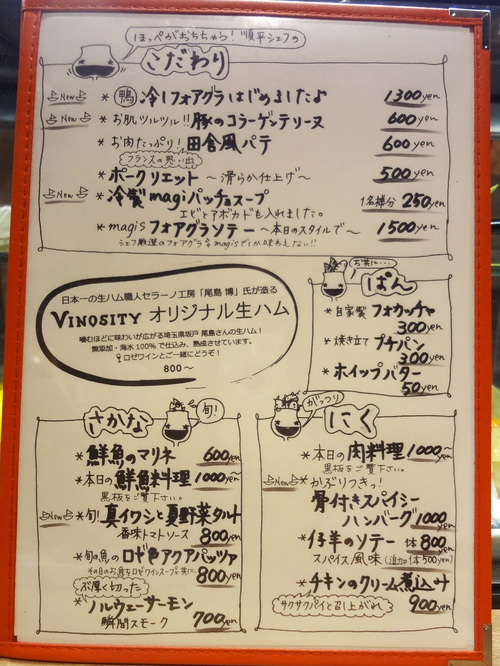 ほっぺがおちちゃう！順平シェフの
こだわり
New * 鴨 冷しフォアグラはじめましたよ 1300yen
New * お肌ツルツル!!豚のコラーゲンテリーヌ 600yen
* お肉たっぷり！田舎風パテ 600yen
フランスの思い出
* ポークリエット ～滑らか仕上げ～ 500yen
New * 冷製magiパッチョスープ 1名様分 250yen
エビとアボカドも入れました。
* magisフォアグラソテー ～本日のスタイルで～ 1500yen
シェフ厳選のフォアグラをmagisでしか味わえない!!
日本一の生ハム職人セラーノ工房「尾島 博」氏が造る
VINOSITY オリジナル生ハム
噛むほどに味わいが広がる埼玉県坂戸 尾島さんの生ハム！
無添加・海水100%で仕込み、熟成させています。
ロゼワインとご一緒にどうぞ！
800～
お供に…
ぱん
* 自家製 フォカッチャ
300yen
* 焼き立て プチパン
300yen
* ホイップバター
50yen
さかな
旬！
* 鮮魚のマリネ 600yen
* 本日の鮮魚料理 1000yen
黒板をご覧下さい。
New * 旬！真イワシと夏野菜タルト
香味トマトソース 800yen
* 旬の魚の ロゼ色アクアパッツァ
その日のお魚をロゼワインスープ共に 800yen
ぶ厚く切った
* ノルウェーサーモン
瞬間スモーク 700yen
にく
がっつり
* 本日の肉料理 1000yen
黒板をご覧下さい。
New * かぶりつきっ！
骨付きスパイシー
ハンバーグ 1000yen
* 仔羊のソテー 1本 800yen
スパイス風味 (追加1本500yen)
* チキンのクリーム煮込み
サクサクパイと召し上がれ 900yen